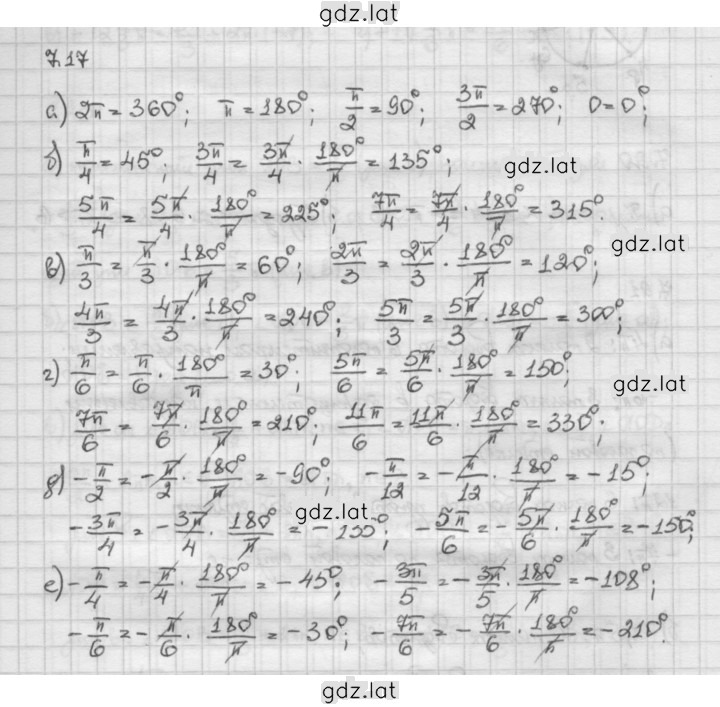 gdz.lat
7.17
а) 2π = 360°; π = 180°; π/2 = 90°; 3π/2 = 270°; 0 = 0°;
б) π/4 = 45°; 3π/4 = 3π/4 · 180°/π = 135°;
gdz.lat
5π/4 = 5π/4 · 180°/π = 225°; 7π/4 = 7π/4 · 180°/π = 315°.
gdz.lat
в) π/3 = π/3 · 180°/π = 60°; 2π/3 = 2π/3 · 180°/π = 120°;
4π/3 = 4π/3 · 180°/π = 240°; 5π/3 = 5π/3 · 180°/π = 300°;
г) π/6 = π/6 · 180°/π = 30°; 5π/6 = 5π/6 · 180°/π = 150°;
gdz.lat
7π/6 = 7π/6 · 180°/π = 210°; 11π/6 = 11π/6 · 180°/π = 330°;
д) -π/2 = -π/2 · 180°/π = -90°; -π/12 = -π/12 · 180°/π = -15°;
gdz.lat
-3π/4 = -3π/4 · 180°/π = -135°; -5π/6 = -5π/6 · 180°/π = -150°;
е) -π/4 = -π/4 · 180°/π = -45°; -3π/5 = -3π/5 · 180°/π = -108°;
-π/6 = -π/6 · 180°/π = -30°; -7π/6 = -7π/6 · 180°/π = -210°.
gdz.lat